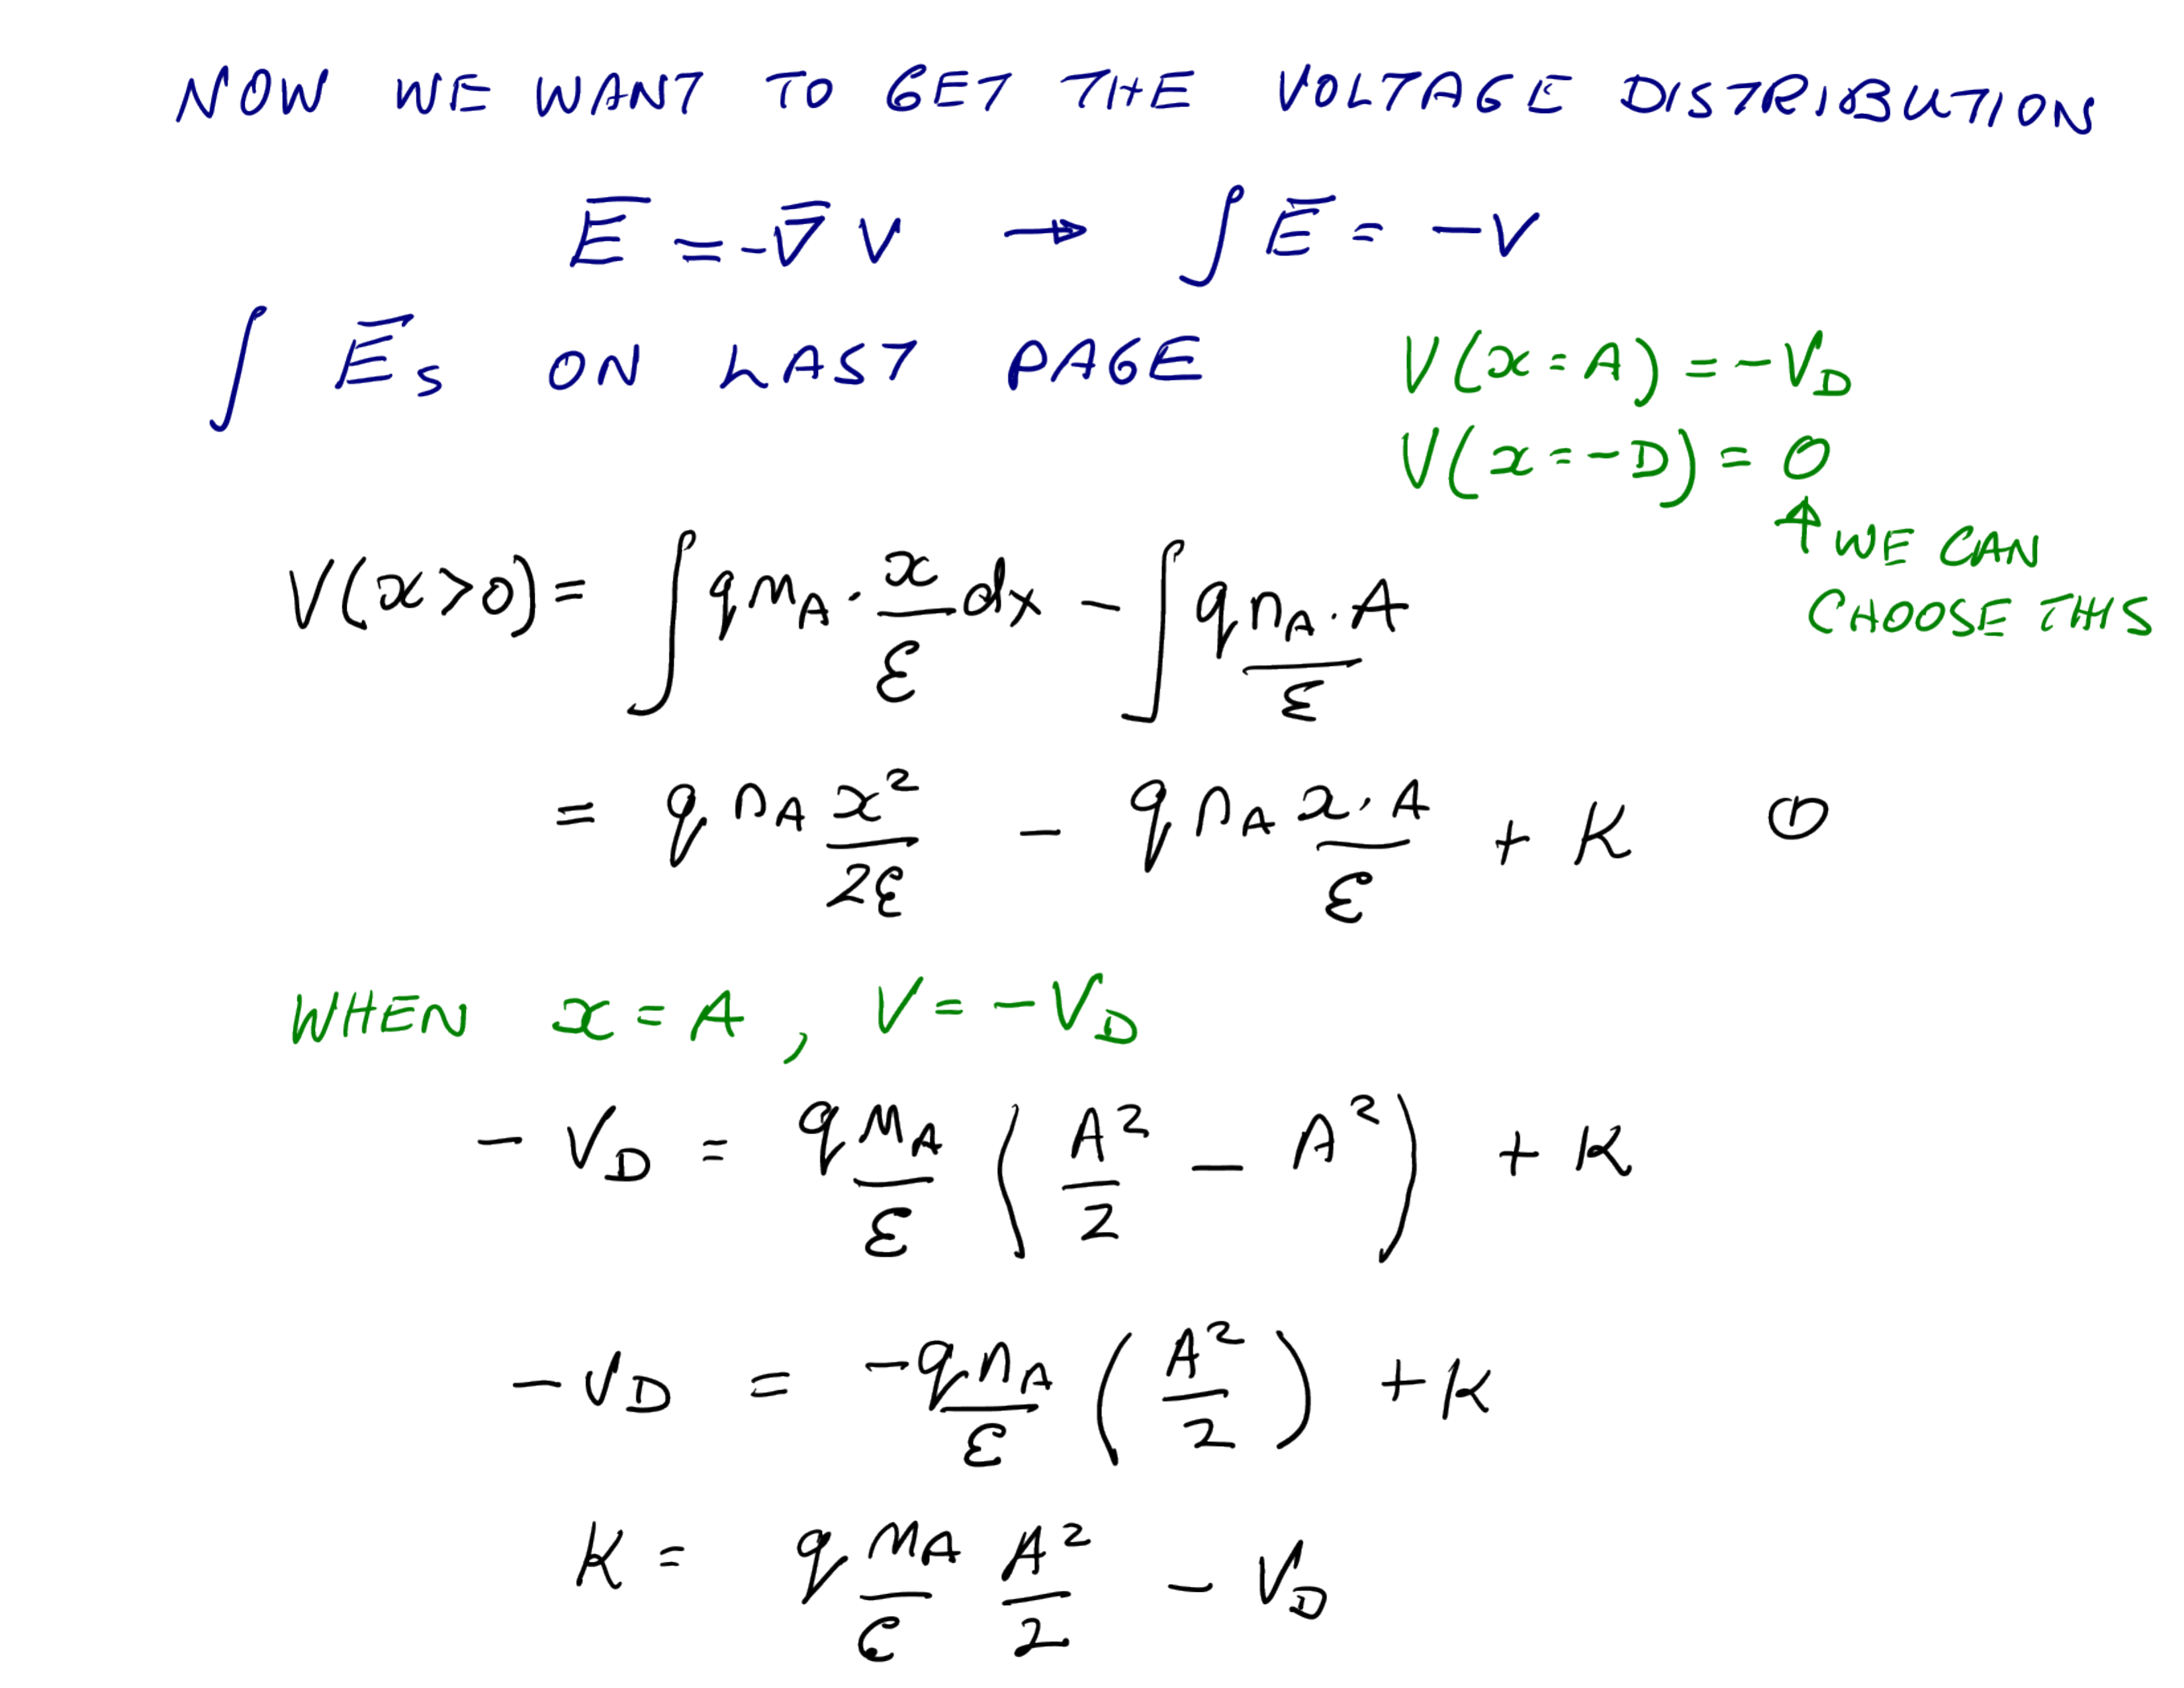 NOW WE WANT TO GET THE VOLTAGE DISTRIBUTION
E̅ = -∇̅ V → ∫ E̅ = -V
∫ E̅s ON LAST PAGE
V(x=A) = -V_D
V(x=-D) = 0
↑ WE CAN
CHOOSE THIS
V(x>0) = ∫ q n_A · x/ε dx - ∫ q n_A · A/ε
= q n_A x²/2ε - q n_A x·A/ε + K ①
WHEN x = A , V = -V_D
- V_D = q n_A/ε ( A²/2 - A² ) + K
- V_D = -q n_A/ε ( A²/2 ) + K
K = q n_A/ε A²/2 - V_D